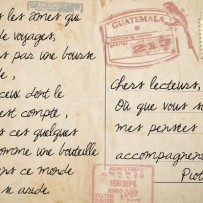 s les âmes que
de voyages,
s par une bourse
de,
ceux dont le
est compté,
ces quelques
comme une bouteille
ns ce monde
aride.
GUATEMALA
Chers lecteurs,
Où que vous s
mes pensées
accompagnent